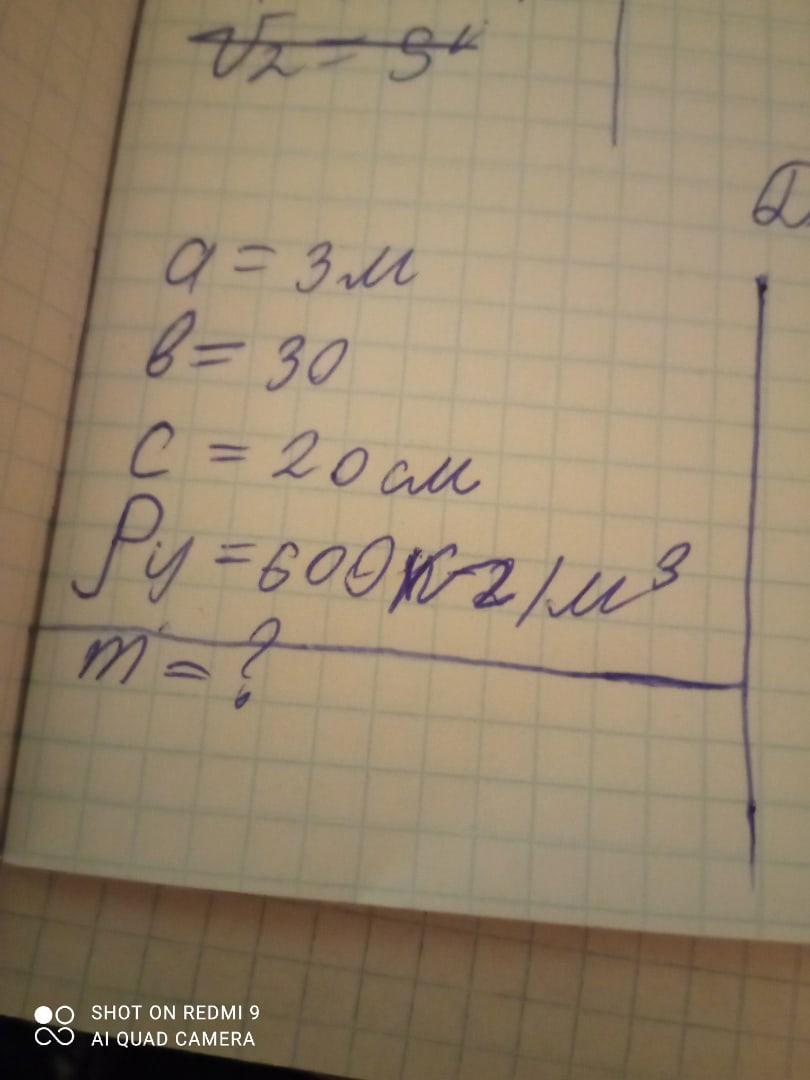 V₂ = S
а = 3м
в = 30
с = 20 см
ρу = 600 кг/м³
m = ?
SHOT ON REDMI 9
AI QUAD CAMERA